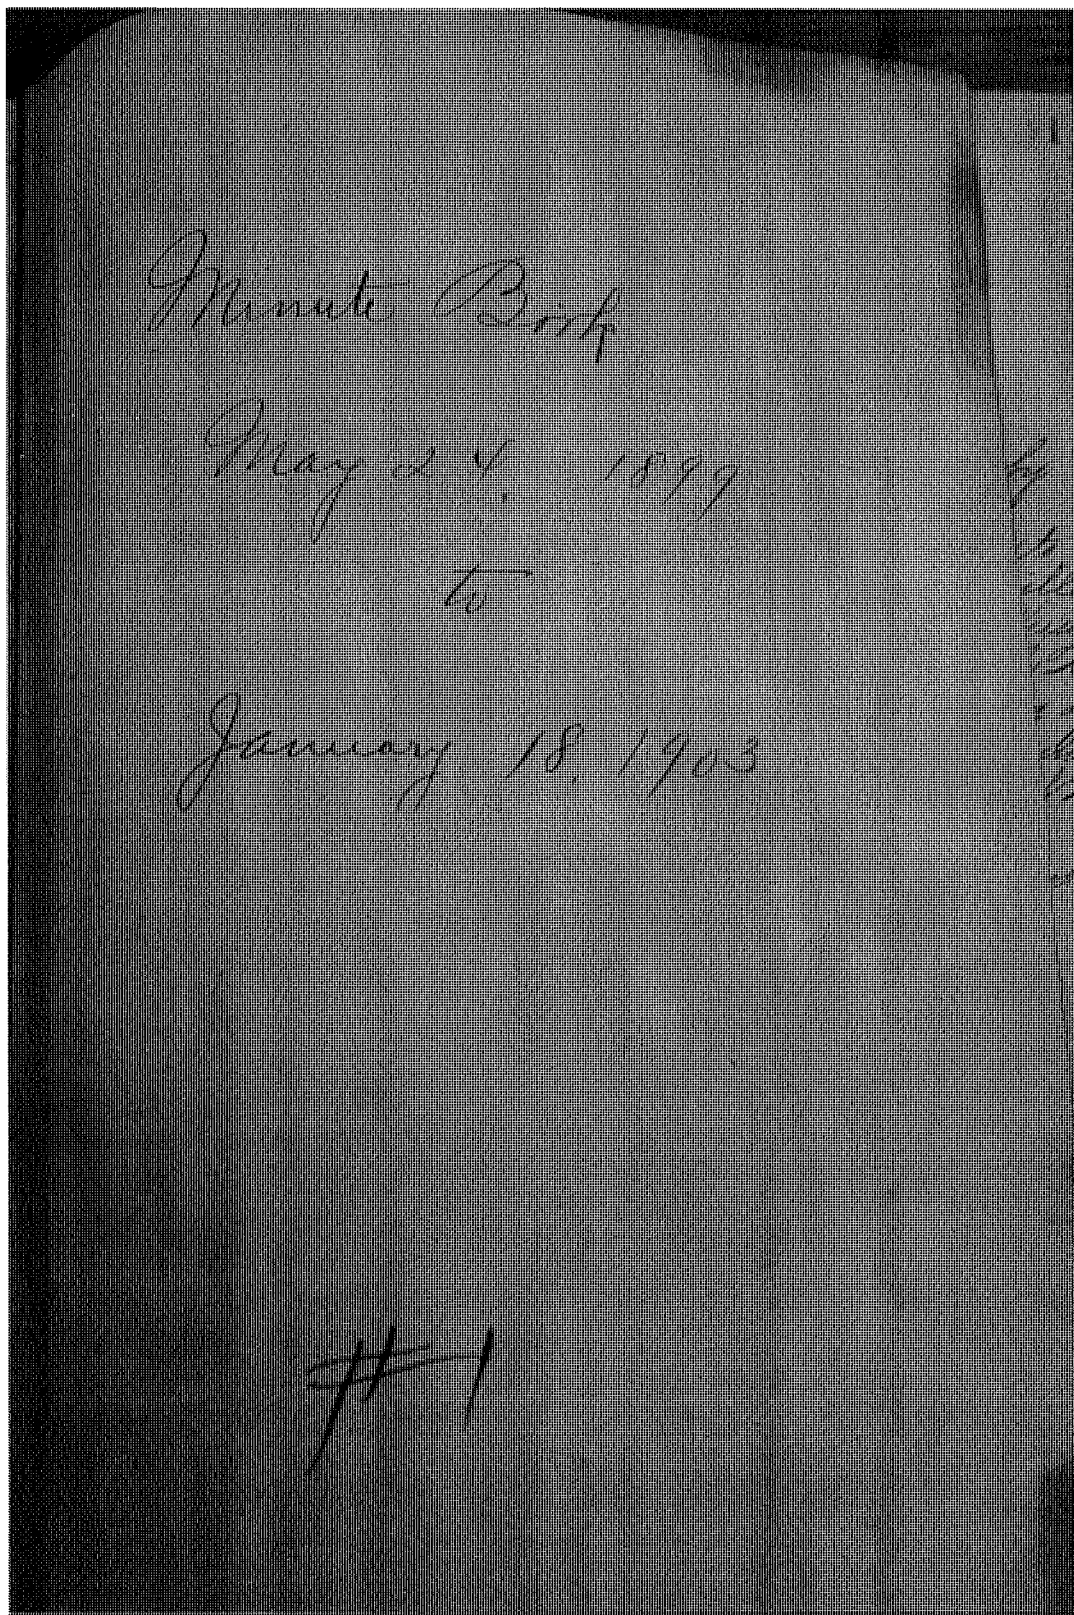 Minute Book
May 24, 1899
to
January 18, 1903
# 1